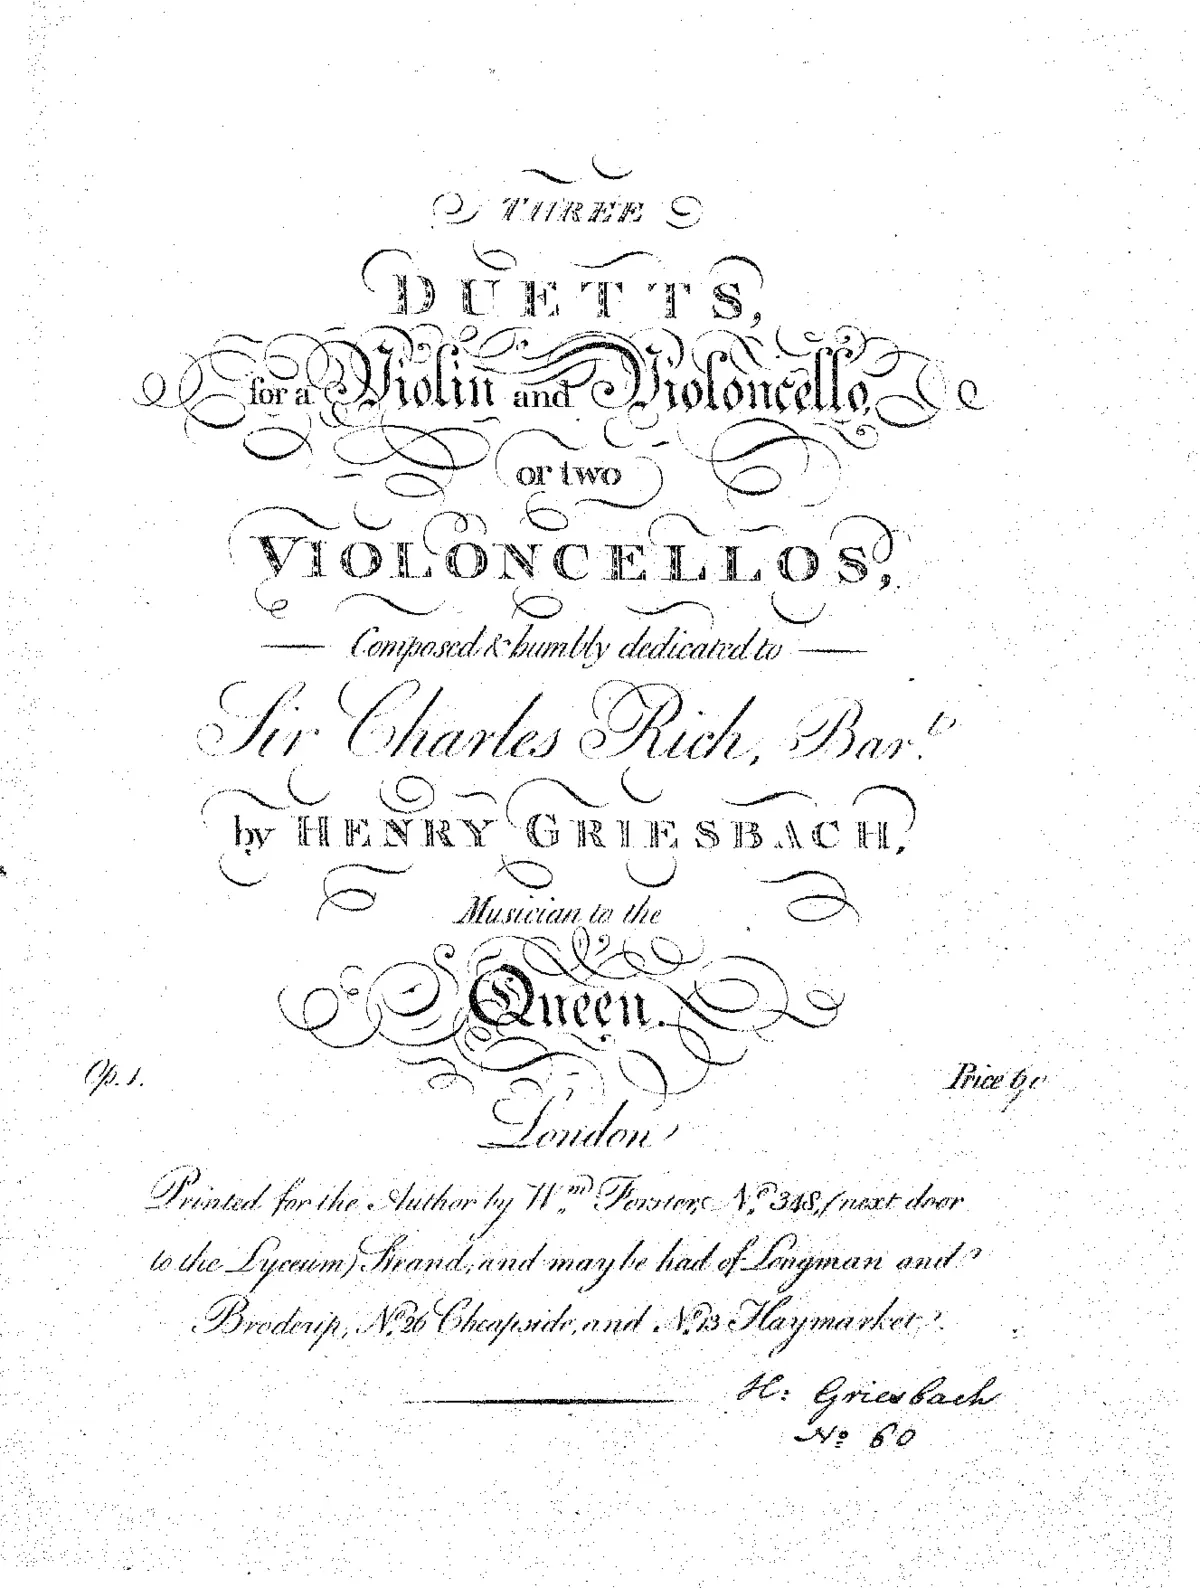 THREE
DUETTS,
for a Violin and Violoncello,
or two
VIOLONCELLOS,
Composed & humbly dedicated to
Sir Charles Rich, Bar.t
by HENRY GRIESBACH,
Musician to the
Queen.
Op. 1.
Price
London
Printed for the Author by Wm. Forster, No. 348, (next door
to the Lyceum) Strand, and may be had of Longman and
Broderip, No. 26 Cheapside, and No. 13 Haymarket.
H: Griesbach
No 60